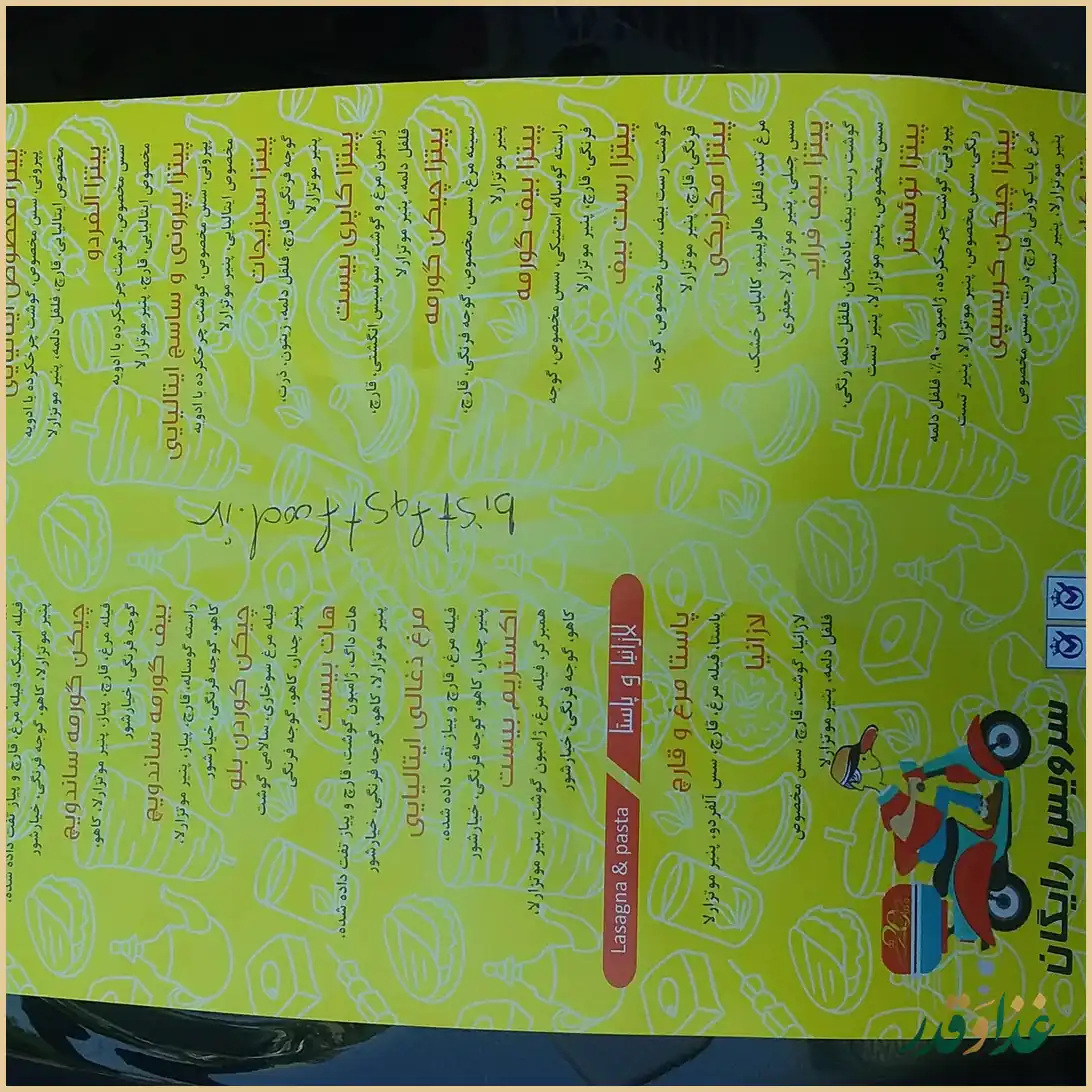 پیتزا مخصوص ایتالیایی
پپرونی، سس مخصوص، گوشت چرخکرده با ادویه
مخصوص ایتالیایی، قارچ، فلفل دلمه، پنیر موتزارلا
پیتزا آلفردو
سس مخصوص، گوشت چرخکرده با ادویه
مخصوص ایتالیایی، قارچ، پنیر موتزارلا
پیتزا پپرونی و ساسج ایتالیایی
پپرونی، سس مخصوص، گوشت چرخکرده با ادویه
مخصوص ایتالیایی، پنیر موتزارلا
پیتزا سبزیجات
گوجه فرنگی، قارچ، فلفل دلمه، زیتون، ذرت،
پنیر موتزارلا
پیتزا کاپری بیست
ژامبون مرغ و گوشت، سوسیس انگشتی، قارچ،
فلفل دلمه، پنیر موتزارلا
پیتزا چیکن گورمه
سینه مرغ، سس مخصوص، گوجه فرنگی، قارچ،
پنیر موتزارلا
پیتزا بیف گورمه
راسته گوساله استیکی، سس مخصوص، گوجه
فرنگی، قارچ، پنیر موتزارلا
پیتزا رست بیف
گوشت رست بیف، سس مخصوص، گوجه
فرنگی، قارچ، پنیر موتزارلا
پیتزا مکزیکی
مرغ تند، فلفل هالوپینو، کالباس خشک،
سس چیلی، پنیر موتزارلا، جعفری
پیتزا بیف فراید
گوشت رست بیف، بادمجان، فلفل دلمه رنگی،
سس مخصوص، پنیر موتزارلا، پنیر تست
پیتزا توفستر
پپرونی، گوشت چرخکرده، ژامبون ۹۰٪، فلفل دلمه
رنگی، سس مخصوص، پنیر موتزارلا، پنیر تست
پیتزا چیکن کریسپی
مرغ پاپ کورنی، قارچ، ذرت، سس مخصوص
پنیر موتزارلا، پنیر تست
bistfastfood.ir
فیله استیک، فیله مرغ، قارچ و پیاز تفت داده شده،
پنیر موتزارلا، کاهو، گوجه فرنگی، خیارشور
چیکن گورمه ساندویچ
فیله مرغ، قارچ، پیاز، پنیر موتزارلا، کاهو،
گوجه فرنگی، خیارشور
بیف گورمه ساندویچ
راسته گوساله، قارچ، پیاز، پنیر موتزارلا،
کاهو، گوجه فرنگی، خیارشور
چیکن کوردن بلو
فیله مرغ سوخاری، سالامی گوشت
پنیر چدار، کاهو، گوجه فرنگی
هات بیست
هات داگ، ژامبون گوشت، قارچ و پیاز تفت داده شده،
پنیر موتزارلا، کاهو، گوجه فرنگی، خیارشور
مرغ ذغالی ایتالیایی
فیله مرغ، قارچ و پیاز تفت داده شده،
پنیر چدار، کاهو، گوجه فرنگی، خیارشور
اکستریم بیست
همبرگر، فیله مرغ، ژامبون گوشت، پنیر موتزارلا،
کاهو، گوجه فرنگی، خیارشور
Lasagna & pasta لازانیا و پاستا
پاستا مرغ و قارچ
پاستا، فیله مرغ، قارچ، سس آلفردو، پنیر موتزارلا
لازانیا
لازانیا، گوشت، قارچ، سس مخصوص
فلفل دلمه، پنیر موتزارلا
سرویس رایگان
غذا و قدر